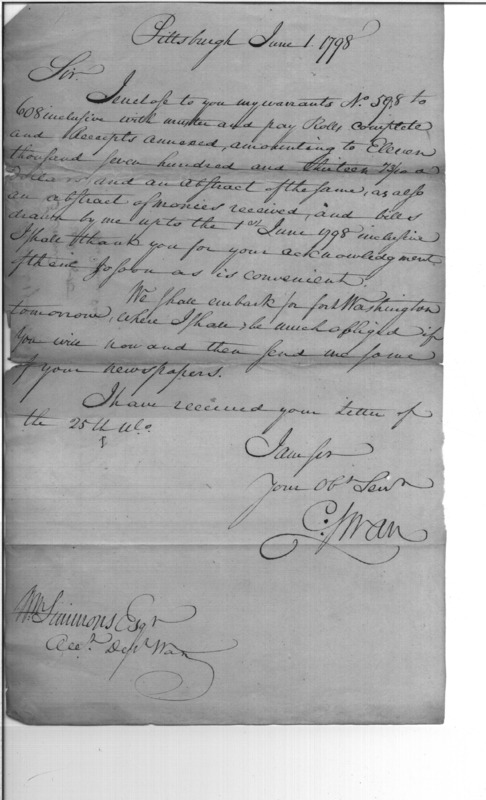 Pittsburgh June 1. 1798
Sir.
I enclose to you my warrants No. 598 to
608 inclusive with muster and pay Rolls complete
and Receipts annexed, amounting to Eleven
thousand seven hundred and thirteen
Dollars, and an abstract of the same, as also
an abstract of monies received, and bills
drawn by me up to the 1st June 1798 inclusive
I shall thank you for your acknowledgment
of them so soon as is convenient.
We shall embark for fort Washington
tomorrow, where I shall be much obliged if
you will now and then send me some
of your newspapers.
I have received your Letter of
the 25th Ulo.
I am Sir
Your Obt Servt
C. Swan
Wm Simmons Esqr
Acct. Dept War